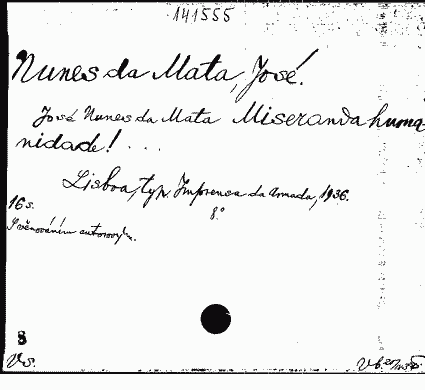 141555
Nunes da Mata, José.
José Nunes da Mata Miseranda huma
nidade! . . .
Lisboa, typ. Imprensa da Armada, 1936.
16 s. 8°
S věnováním autorovým.
8
Vs.